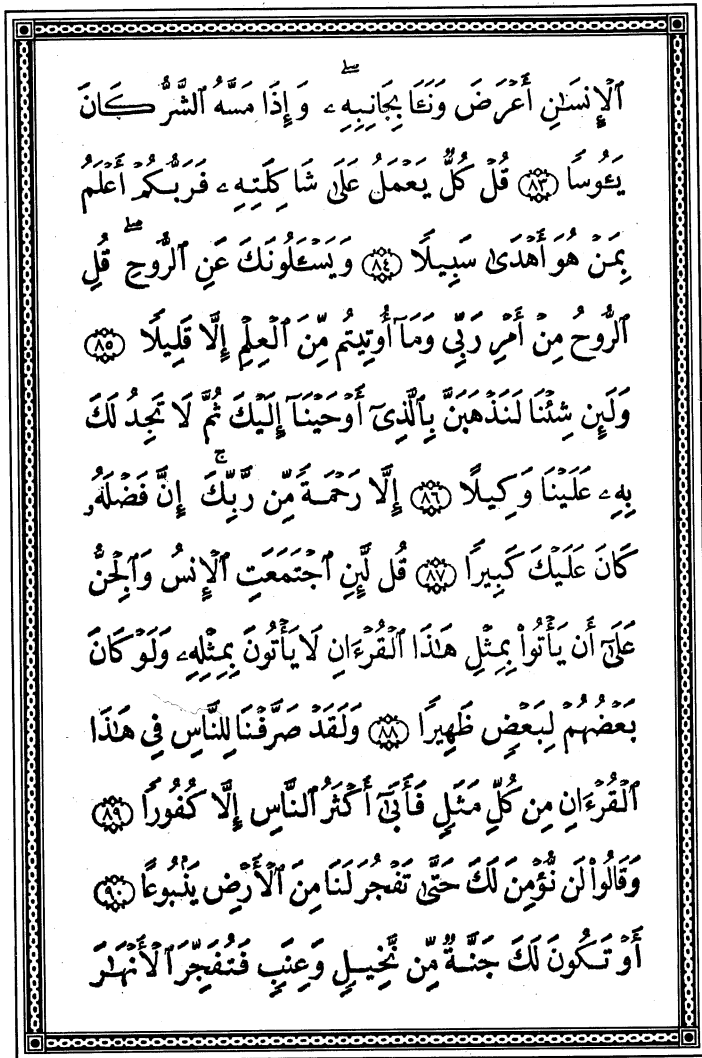 ٱلْإِنسَٰنِ أَعْرَضَ وَنَـَٔا بِجَانِبِهِۦ ۖ وَإِذَا مَسَّهُ ٱلشَّرُّ كَانَ
يَـُٔوسًا ﴿٨٣﴾ قُلْ كُلٌّ يَعْمَلُ عَلَىٰ شَاكِلَتِهِۦ فَرَبُّكُمْ أَعْلَمُ
بِمَنْ هُوَ أَهْدَىٰ سَبِيلًا ﴿٨٤﴾ وَيَسْـَٔلُونَكَ عَنِ ٱلرُّوحِ ۖ قُلِ
ٱلرُّوحُ مِنْ أَمْرِ رَبِّى وَمَآ أُوتِيتُم مِّنَ ٱلْعِلْمِ إِلَّا قَلِيلًا ﴿٨٥﴾
وَلَئِن شِئْنَا لَنَذْهَبَنَّ بِٱلَّذِىٓ أَوْحَيْنَآ إِلَيْكَ ثُمَّ لَا تَجِدُ لَكَ
بِهِۦ عَلَيْنَا وَكِيلًا ﴿٨٦﴾ إِلَّا رَحْمَةً مِّن رَّبِّكَ ۚ إِنَّ فَضْلَهُۥ
كَانَ عَلَيْكَ كَبِيرًا ﴿٨٧﴾ قُل لَّئِنِ ٱجْتَمَعَتِ ٱلْإِنسُ وَٱلْجِنُّ
عَلَىٰٓ أَن يَأْتُوا۟ بِمِثْلِ هَٰذَا ٱلْقُرْءَانِ لَا يَأْتُونَ بِمِثْلِهِۦ وَلَوْ كَانَ
بَعْضُهُمْ لِبَعْضٍ ظَهِيرًا ﴿٨٨﴾ وَلَقَدْ صَرَّفْنَا لِلنَّاسِ فِى هَٰذَا
ٱلْقُرْءَانِ مِن كُلِّ مَثَلٍ فَأَبَىٰٓ أَكْثَرُ ٱلنَّاسِ إِلَّا كُفُورًا ﴿٨٩﴾
وَقَالُوا۟ لَن نُّؤْمِنَ لَكَ حَتَّىٰ تَفْجُرَ لَنَا مِنَ ٱلْأَرْضِ يَنۢبُوعًا ﴿٩٠﴾
أَوْ تَكُونَ لَكَ جَنَّةٌ مِّن نَّخِيلٍ وَعِنَبٍ فَتُفَجِّرَ ٱلْأَنْهَٰرَ